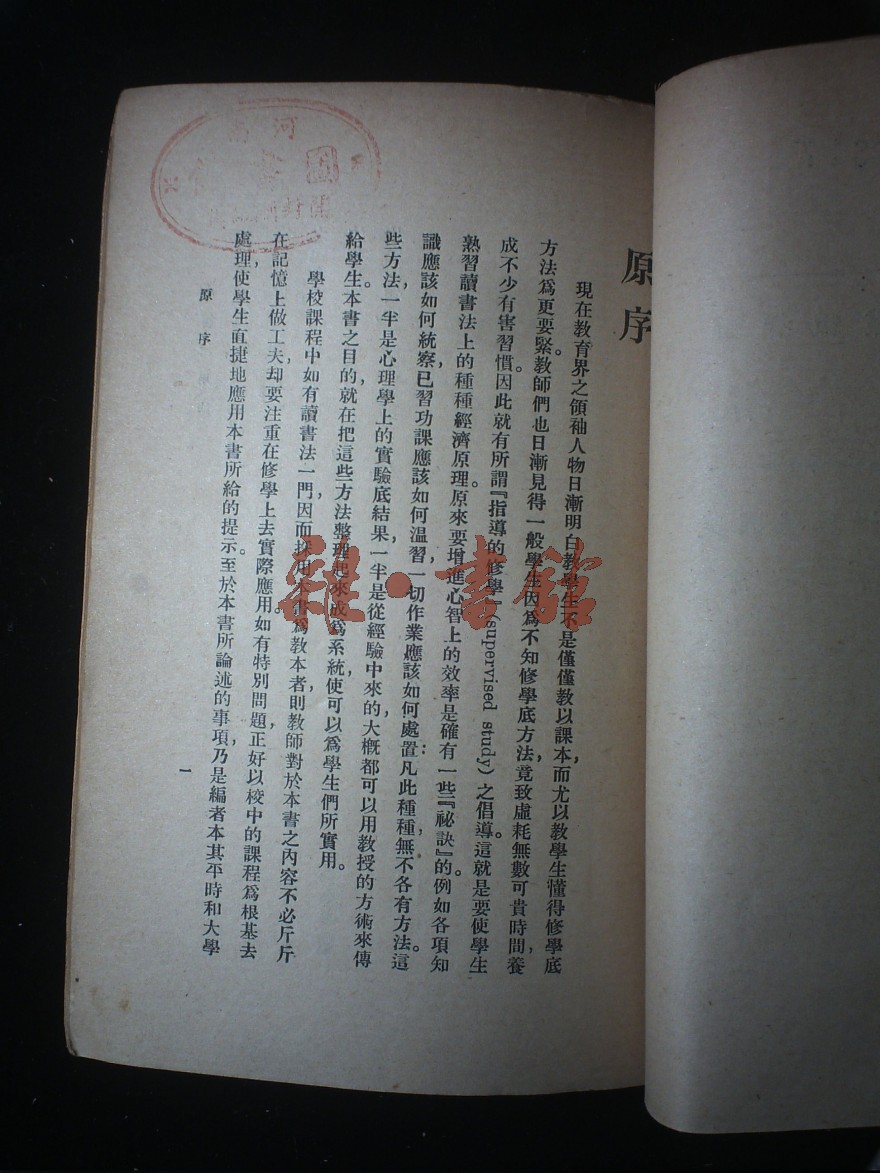 原序
現在教育界之領袖人物日漸明白教學生不是僅僅教以課本，而尤以教學生懂得修學底
方法爲更要緊。教師們也日漸見得一般學生因爲不知修學底方法，竟致虛耗無數可貴時間，養
成不少有害習慣。因此就有所謂『指導的修學』(supervised study)之倡導。這就是要使學生
熟習讀書法上的種種經濟原理。原來要增進心智上的效率是確有一些『祕訣』的。例如各項知
識應該如何統察，已習功課應該如何溫習，一切作業應該如何處置：凡此種種，無不各有方法。這
些方法，一半是心理學上的實驗底結果，一半是從經驗中來的，大概都可以用教授的方術來傳
給學生。本書之目的，就在把這些方法整理起來成爲系統使可以爲學生們所實用。
學校課程中如有讀書法一門，因而採用本書爲教本者，則教師對於本書之內容不必斤斤
在記憶上做工夫，却要注重在修學上去實際應用。如有特別問題，正好以校中的課程爲根基去
處理，使學生直捷地應用本書所給的提示。至於本書所論述的事項，乃是編者本其平時和大學
原序
一
河南
圖書館
雜·書館